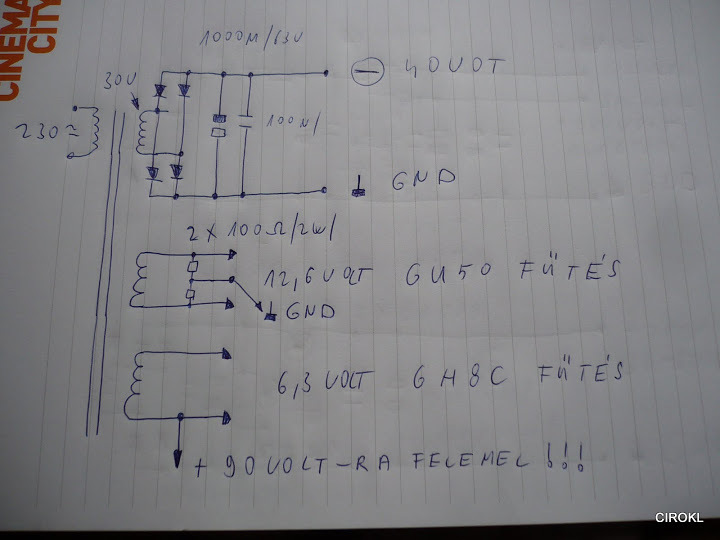 CINEMA
CITY
1000M/63V
30V
⊖ 40VOT
230≈
100N/
GND
2 X 100Ω/2W/
12,6VOLT GU50 FŰTÉS
GND
6,3 VOLT 6H8C FŰTÉS
+ 90VOLT-RA FELEMEL !!!
CIROKL